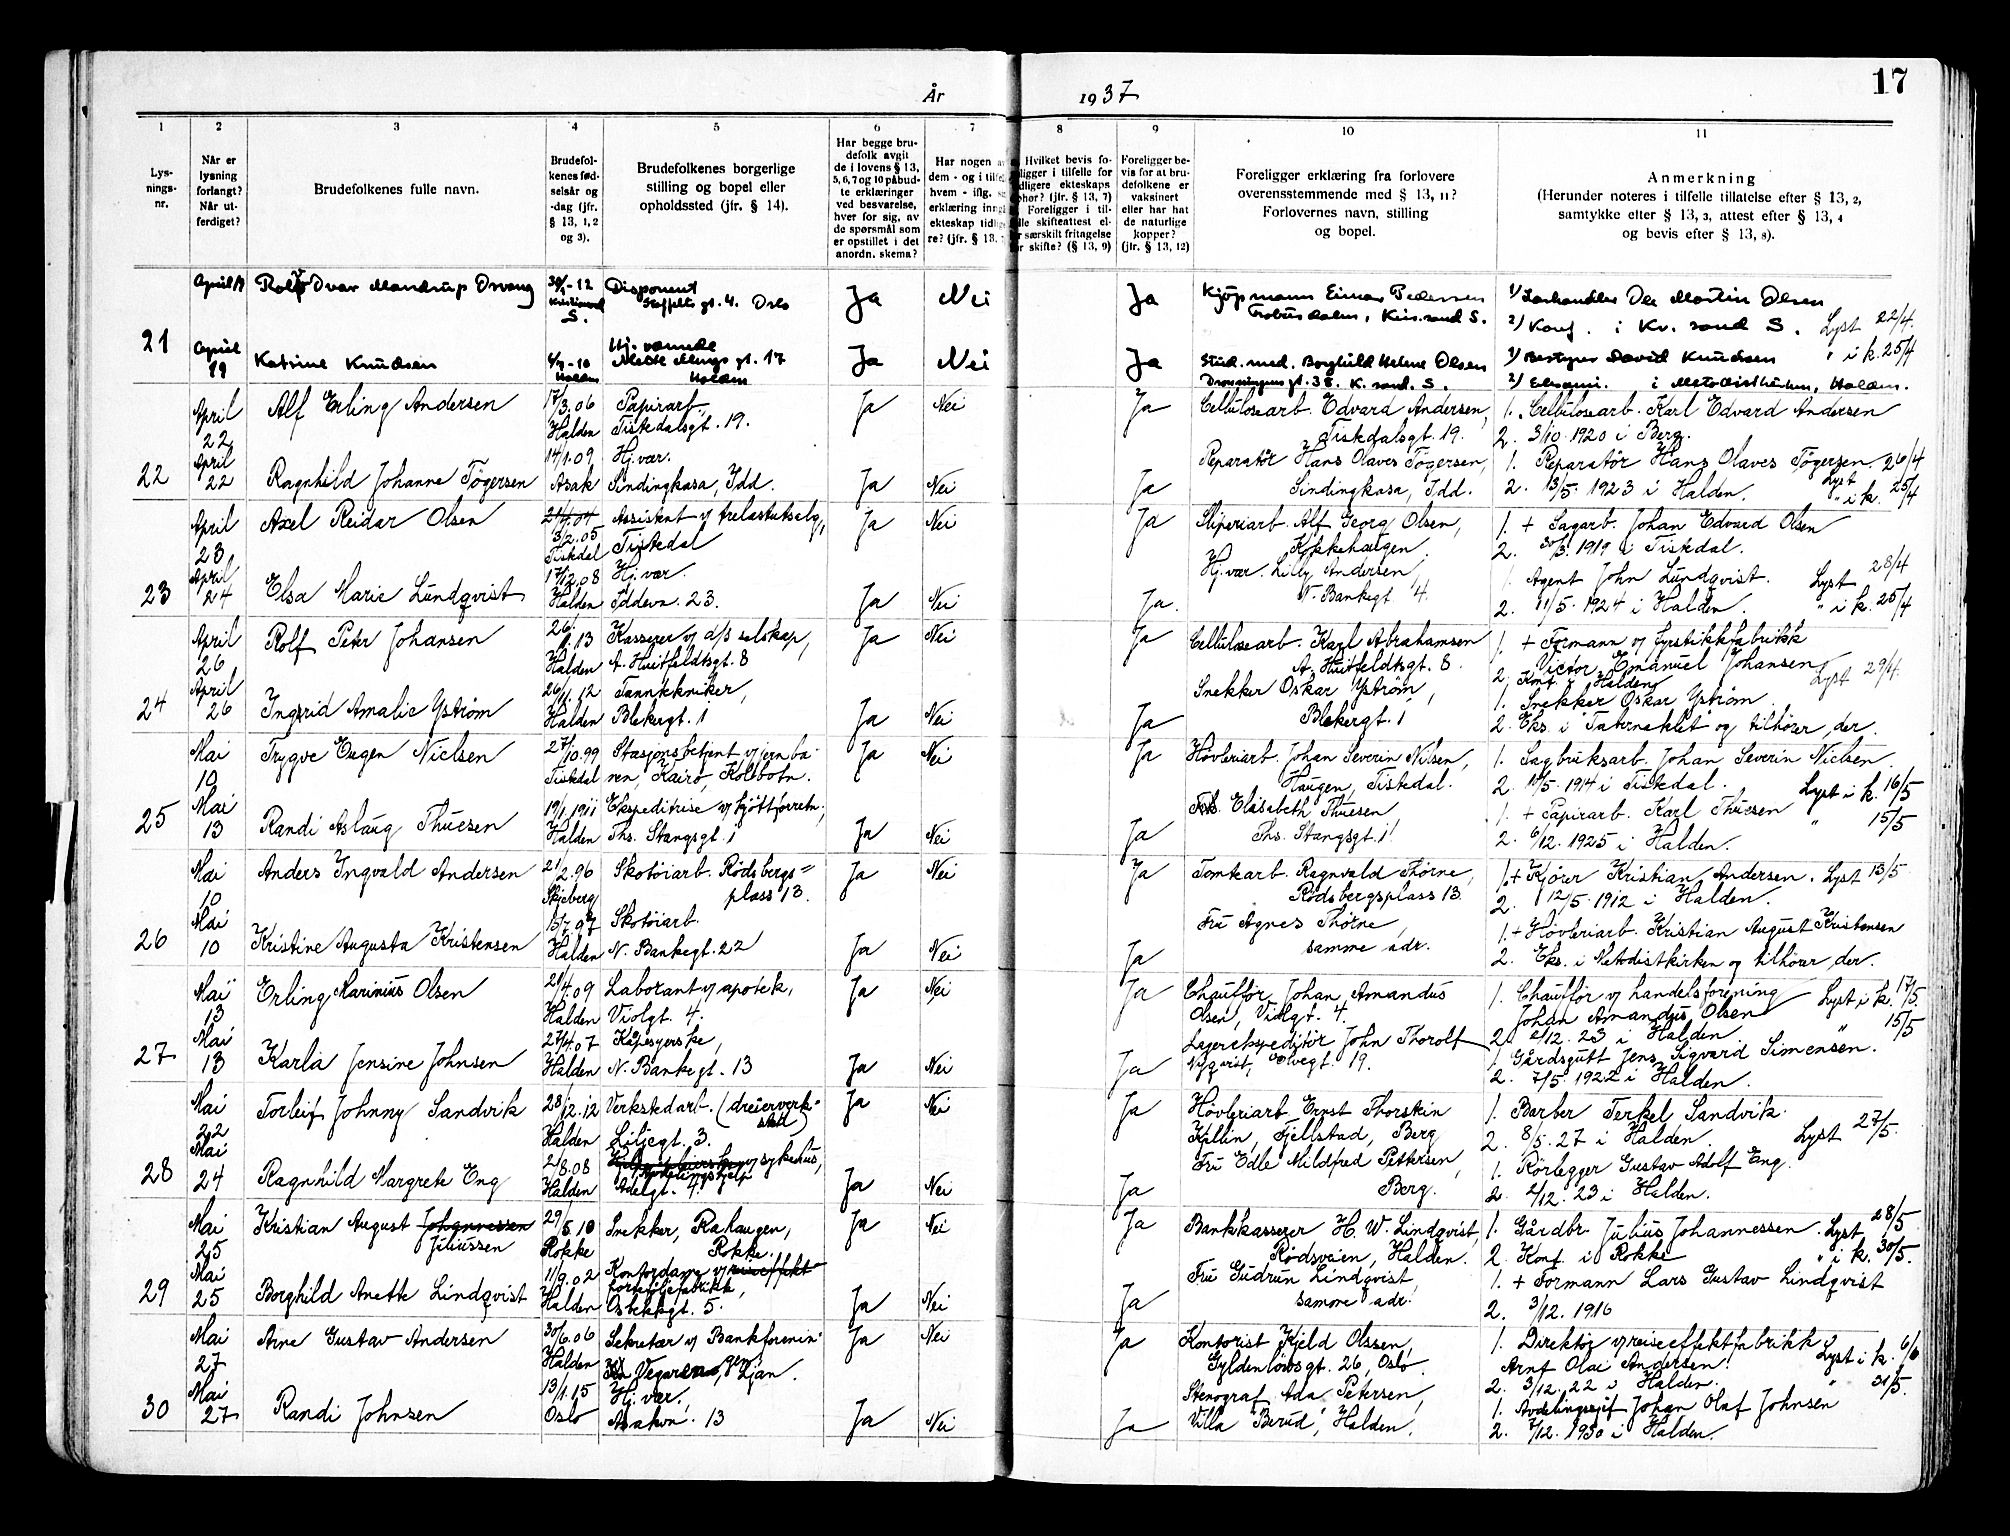 17
År 1937
1 2 3 4 5 6 7 8 9 10 11
Lys-
nings-
nr.
Når er
lysning
forlangt?
Når ut-
ferdiget?
Brudefolkenes fulle navn.
Brudefol-
kenes fød-
selsår og
-dag (jfr.
§ 13, 1, 2
og 3).
Brudefolkenes borgerlige
stilling og bopel eller
opholdssted (jfr. § 14).
Har begge bru-
defolk avgit
de i lovens § 13,
5, 6, 7 og 10 påbud-
te erklæringer
ved besvarelse,
hver for sig, av
de spørsmål som
er opstillet i det
anordn. skema?
Har nogen av
dem - og i tilfel
hvem - iflg. s
erklæring inng
ekteskap tidlig
re? (jfr. § 13,
Hvilket bevis fo-
ligger i tilfelle for
dligere ekteskaps
phør? (jfr. § 13, 7)
Foreligger i til-
lle skifteattest el-
r særskilt fritagelse
r skifte? (§ 13, 9)
Foreligger be-
vis for at bru-
defolkene er
vaksinert
eller har hat
de naturlige
kopper?
(jfr. § 13, 12)
Foreligger erklæring fra forlovere
overensstemmende med § 13, 11?
Forlovernes navn, stilling
og bopel.
Anmerkning
(Herunder noteres i tilfelle tillatelse efter § 13, 2,
samtykke efter § 13, 3, attest efter § 13, 4
og bevis efter § 13, 8).
21
April 19
Rolf Ivar Mandrup
30/1-12
S.
Disponent
gt. 4. Oslo
Ja Nei Ja
Kjøpmann Einar Pedersen
Kris.sand S.
1/ Ole Martin Olsen
2/ Konf. i Kr. sand S. Lyst 22/4.
April
19
Katrine Knudsen
Halden
Hj. værende
gt. 17
Halden
Ja Nei Ja
Stud. med. Borghild Helene Olsen
Dronningens gt. 38. K. sand. S.
1/ Bestyrer David Knudsen " i k. 25/4
2/ i Metodistkirken, Halden.
April
22
Alf Erling Andersen
17/3.06
Halden
Papirarb.,
Tistedalsgt. 19.
Ja Nei Ja
Cellulosearb. Edvard Andersen,
Tistedalsgt. 19.
1. Cellulosearb. Karl Edvard Andersen
2. 3/10. 1920 i Berg.
22
April
22
Ragnhild Johanne Tøgersen
14/1.09
Asak
Hj.vær.
Sindingkasa, Idd.
Ja Nei Ja
Reparatør Hans Olaves Tøgersen,
Sindingkasa, Idd.
1. Reparatør Hans Olaves Tøgersen. Lyst 26/4
2. 13/5. 1923 i Halden. " i k. 25/4
April
23
Axel Reidar Olsen
3/2.05
Tistedal
Assistent v/ trelastutsalg,
Tistedal
Ja Nei Ja
Sliperiarb. Alf Georg Olsen,
Kokkehaugen.
1. + Sagarb. Johan Edvard Olsen
2. 30/3. 1919 i Tistedal.
23
April
24
Elsa Marie Lundqvist
17/12.08
Halden
Hj.vær.
Iddevn. 23.
Ja Nei Ja.
Hj.vær. Lilly Andersen
N. Bankegt. 4.
1. Agent John Lundqvist. Lyst 28/4
2. 11/5. 1924 i Halden. " i k. 25/4
April
26
Rolf Peter Johansen
26/1.13
Halden
Kasserer v/ d/s selskap,
A. Huitfeldtsgt. 8
Ja Nei Ja
Cellulosearb. Karl Abrahamsen
A. Huitfeldtsgt. 8.
1. + Formann v/ fyrstikkfabrikk
Victor Emanuel Johansen
2. Konf. i Halden Lyst 29/4.
24
April
26
Ingrid Amalie Ystrøm
26/11.12
Halden
Tanntekniker,
Blekergt. 1
Ja Nei Ja
Snekker Oskar Ystrøm,
Blekergt. 1
1. Snekker Oskar Ystrøm
2. Eks. i Tabernaklet og tilhører der.
Mai
10
Trygve Eugen Nielsen
27/10.99
Tistedal
Stasjonsbetjent v/ jernba-
nen, Kairo, Kolbotn.
Ja Nei Ja
Høvleriarb. Johan Severin Nilsen,
Haugen, Tistedal.
1. Sagbruksarb. Johan Severin Nielsen.
2. 11/5. 1914 i Tistedal. Lyst i k. 16/5
25
Mai
13
Randi Aslaug Thuesen
19/1.1911
Halden
Ekspeditrise v/ kjøttforretn.,
Ths. Stangsgt. 1
Ja Nei Ja
Elisabeth Thuesen
Ths. Stangsgt. 1!
1. + Papirarb. Karl Thuesen " 15/5
2. 6/12. 1925 i Halden.
Mai
10
Anders Ingvald Andersen
21/2.96
Skjeberg
Skotøiarb. Rødsbergs=
plass 13.
Ja Nei Ja
Tomtearb. Ragnvald Thorne,
Rødsbergsplass 13.
1. + Kjører Kristian Andersen. Lyst 13/5.
2. 12/5. 1912 i Halden.
26
Mai
10
Kristine Augusta Kristensen
15/7.97
Halden
Skotøiarb.
N. Bankegt. 22
Ja Nei Ja
Fru Agnes Thorne,
samme adr.
1. + Høvleriarb. Kristian August Kristensen
2. Eks. i Metodistkirken og tilhører der.
Mai
13
Erling Marinius Olsen
21/4.09
Halden
Laborant v/ apotek,
Violgt. 4.
Ja Nei Ja
Chauffør Johan Amandus
Olsen, Violgt. 4.
1. Chauffør v/ handelsforening
Johan Amandus Olsen Lyst i k. 17/5.
2. 2/12. 23 i Halden. " 15/5
27
Mai
13
Karla Jensine Johnsen
27/4.07
Halden
Kåpesyerske,
N. Bankegt. 13
Ja Nei Ja
Lagerekspeditør John Thorolf
Nyqvist, Olvegt. 19.
1. Gårdsgutt Jens Sigvard Simensen.
2. 7/5. 1922 i Halden.
Mai
22
Torleif Johnny Sandvik
28/12.12
Halden
Verkstedarb. (dreierverk=
sted)
Liljegt. 3.
Ja Nei Ja
Høvleriarb. Ernst Thorstein
Kjellin, Fjellstad, Berg
1. Barber Terkel Sandvik.
2. 8/5. 27 i Halden. Lyst 27/5.
28
Mai
24
Ragnhild Margrete Eng
2/8.08
Halden
v/ sykehus,
Avdelingshjelp
Adelgt. 7.
Ja Nei Ja
Fru Edle Mildfred Pettersen,
Berg.
1. Rørlegger Gustav Adolf Eng.
2. 2/12. 23 i Halden.
Mai
25
Kristian August Johannessen
Juliussen
29/5.10
Rokke
Snekker, Rahaugen,
Rokke.
Ja Nei Ja
Bankkasserer H. W. Lindqvist,
Rødsveien, Halden.
1. Gårdbr. Julius Johannessen. Lyst 28/5
2. Konf. i Rokke " i k. 30/5.
29
Mai
25
Borghild Anette Lindqvist
11/9.02
Halden
Kontordame v/ reiseffekt
fabrikk,
Osbekkgt. 5.
Ja Nei Ja
Fru Gudrun Lindqvist,
samme adr.
1. + Formann Lars Gustav Lindqvist
2. 3/12. 1916
Mai
27
Arne Gustav Andersen
30/6.06
Halden
Sekretær v/ Bankforenin-
gen,
Ljan.
Ja Nei Ja
Kontorist Kjeld Olssen,
Gyldenløvsgt. 26, Oslo.
1. Direktør v/ reiseeffektfabrikk
Arnt Olai Andersen. Lyst i k. 6/6
2. 3/12. 22 i Halden. " 31/5.
30
Mai
27
Randi Johnsen
13/1.15
Oslo
Hj. vær.
Asakvn. 13
Ja Nei Ja
Stenograf Ada Petersen,
Villa "Berud", Halden.
1. Avdelingssjef Johan Olaf Johnsen
2. 7/12. 1930 i Halden.